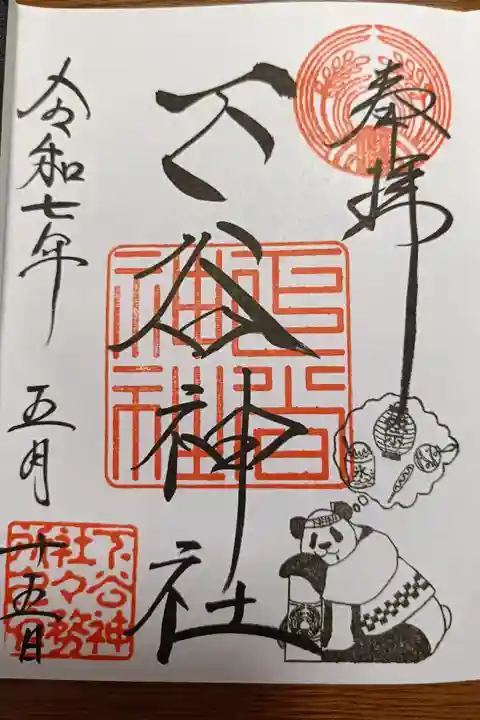 奉拝
下谷神社
下谷神社
令和七年
五月
十五日
下谷神
社々務
氷